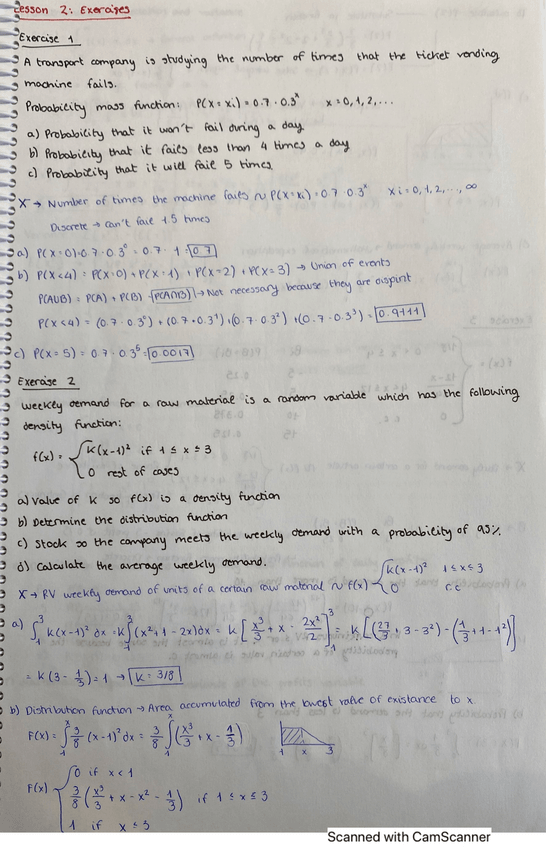 Lesson 2: Exercises
Exercise 1
A transport company is studying the number of times that the ticket vending
machine fails.
Probability mass function: P(X = xi) = 0.7 · 0.3ˣ x = 0, 1, 2, ...
a) Probability that it won't fail during a day
b) Probability that it fails less than 4 times a day
c) Probability that it will fail 5 times
X → Number of times the machine fails ~ P(X = xi) = 0.7 · 0.3ˣ xi = 0, 1, 2, ..., ∞
Discrete → can't fail 1.5 times
a) P(X=0) = 0.7 · 0.3⁰ = 0.7 · 1 = 0.7
b) P(X<4) = P(X=0) + P(X=1) + P(X=2) + P(X=3) → Union of events
P(AUB) = P(A) + P(B) - P(A∩B) → Not necessary because they are disjoint
P(X<4) = (0.7 · 0.3⁰) + (0.7 · 0.3¹) + (0.7 · 0.3²) + (0.7 · 0.3³) = 0.9111
c) P(X=5) = 0.7 · 0.3⁵ = 0.0017
Exercise 2
Weekly demand for a raw material is a random variable which has the following
density function:
f(x) = { k(x-1)² if 1 ≤ x ≤ 3
0 rest of cases
a) Value of k so f(x) is a density function
b) Determine the distribution function
c) Stock so the company meets the weekly demand with a probability of 95%
d) Calculate the average weekly demand.
X → RV weekly demand of units of a certain raw material ~ f(x) { k(x-1)² 1 ≤ x ≤ 3
0 r.c
a) ∫₁³ k(x-1)² dx = k ∫₁³ (x² + 1 - 2x) dx = k [x³/3 + x - 2x²/2]₁³ = k [(27/3 + 3 - 3²) - (1/3 + 1 - 1²)]
= k (3 - 1/3) = 1 → k = 3/8
b) Distribution function → Area accumulated from the lowest value of existance to x
F(x) = ∫₁ˣ 3/8 (x-1)² dx = 3/8 ∫₁ˣ (x³/3 + x - 1/3)
1 x 3
F(x) { 0 if x < 1
3/8 (x³/3 + x - x² - 1/3) if 1 ≤ x ≤ 3
1 if x ≤ 3
Scanned with CamScanner